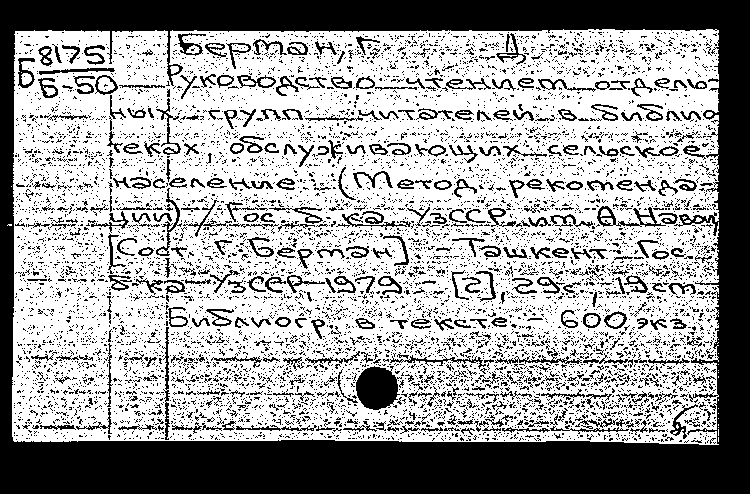 Б 8175 Берман, Г. Д
Б-50 Руководство чтением отдель-
ных групп читателей в библио
теках, обслуживающих сельское
население: (Метод. рекоменда-
ции) / Гос. б-ка УзССР им. А. Навои
[Сост. Г. Берман]. - Ташкент: Гос.
б-ка УзССР, 1979. - [2], 29с.; 19 cm.
Библиогр. в тексте. - 600 экз.